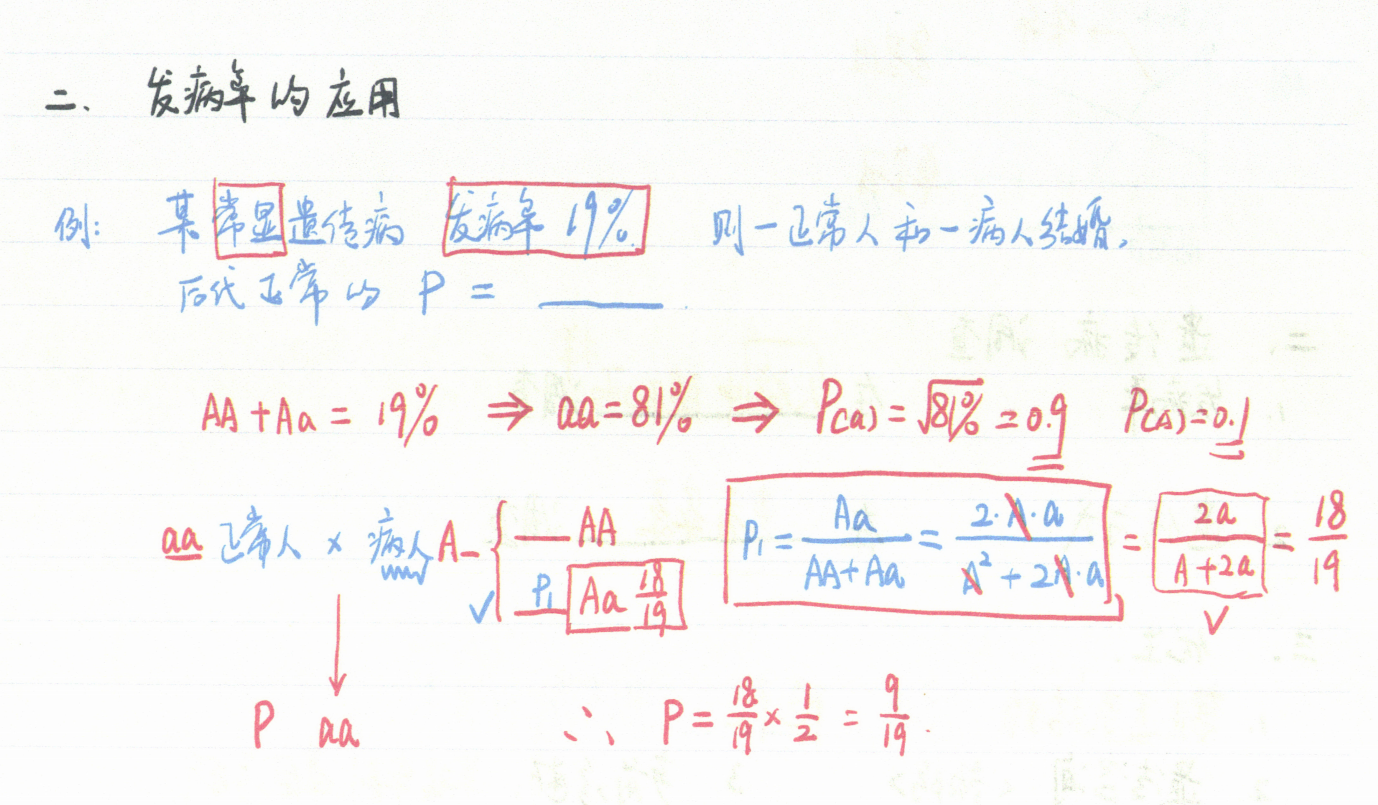 二、 发病率的应用
例: 某常显遗传病 发病率 19% 则一正常人和一病人结婚,
后代正常的 P = ______.
AA + Aa = 19% ⇒ aa = 81% ⇒ P(a) = √81% = 0.9 P(A) = 0.1
aa 正常人 × 病人 A_ { ___ AA
✓ P₁ Aa 18/19
P₁ = Aa/(AA+Aa) = 2·A·a/(A²+2A·a) = 2a/(A+2a) = 18/19
✓
P aa ∴ P = 18/19 × 1/2 = 9/19.